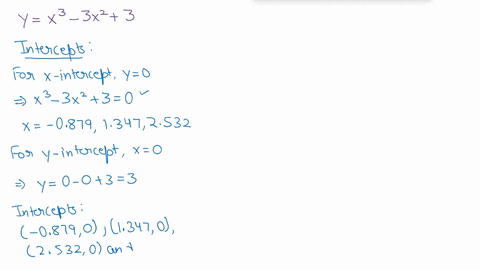 y = x³ - 3x² + 3
Intercepts:
For x-intercept, y=0
⇒ x³ - 3x² + 3 = 0 ✓
x = -0.879, 1.347, 2.532
For y-intercept, x=0
⇒ y = 0 - 0 + 3 = 3
Intercepts:
(-0.879, 0), (1.347, 0),
(2.532, 0) an